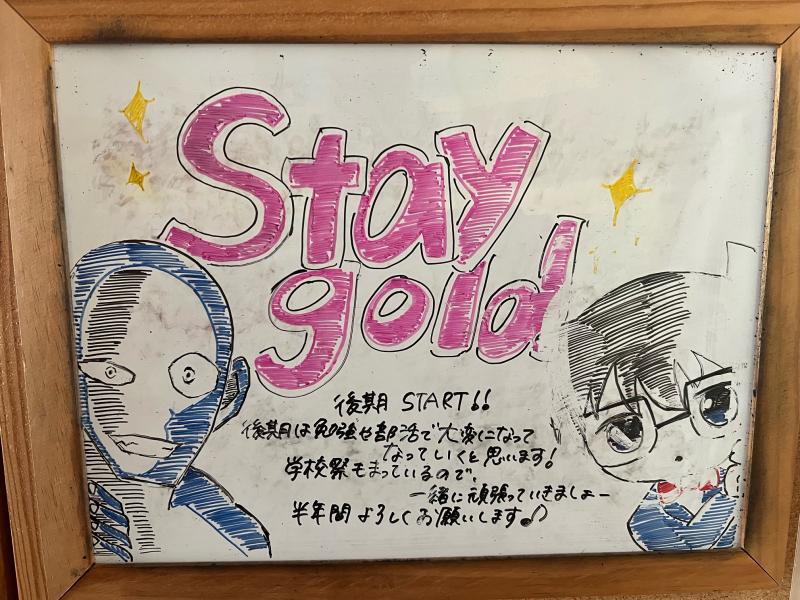 Stay
gold
後期 START!!
後期は勉強や部活で大変になって
なっていくと思います!
学校祭もまっているので、
一緒に頑張っていきましょー
半年間よろしくお願いします♪